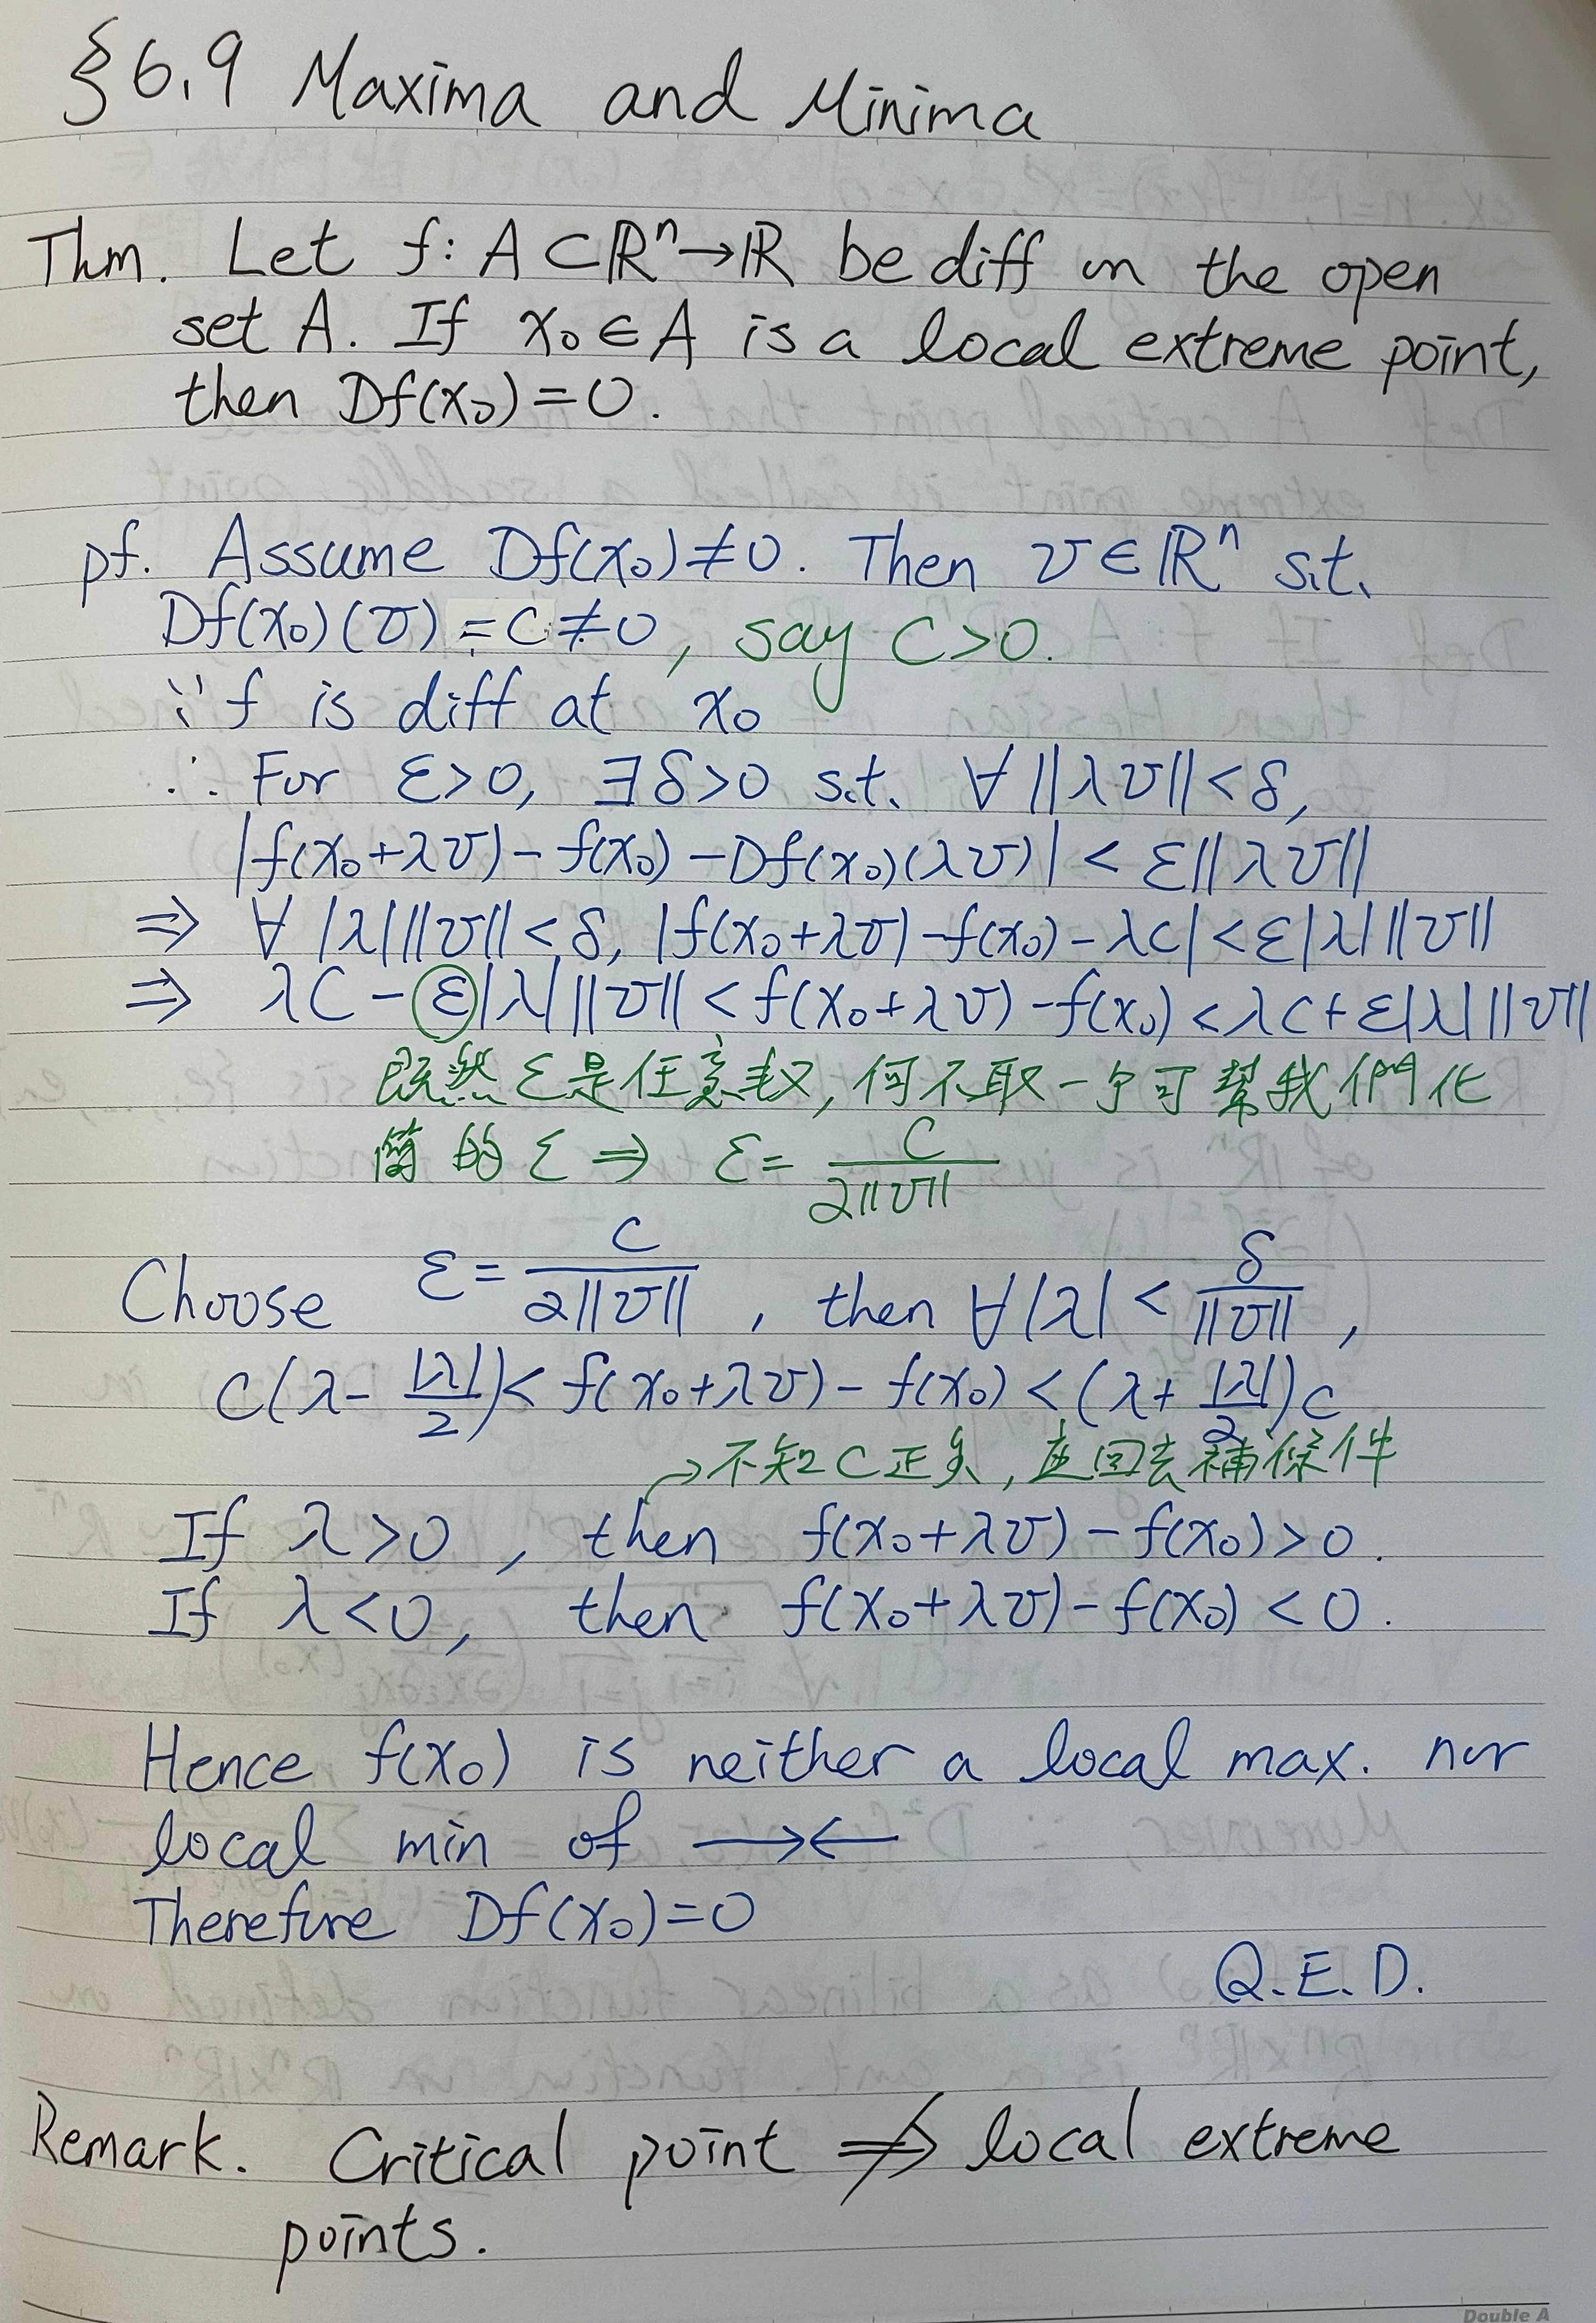 §6.9 Maxima and Minima
Thm. Let f: A⊂ℝⁿ→ℝ be diff on the open
set A. If x₀∈A is a local extreme point,
then Df(x₀)=0.
pf. Assume Df(x₀)≠0. Then v∈ℝⁿ s.t.
Df(x₀)(v)=C≠0, say C>0.
∵ f is diff at x₀
∴ For ε>0, ∃δ>0 s.t. ∀||λv||<δ,
|f(x₀+λv)-f(x₀)-Df(x₀)(λv)|<ε||λv||
⇒ ∀|λ|||v||<δ, |f(x₀+λv)-f(x₀)-λC|<ε|λ|||v||
⇒ λC-ε|λ|||v||<f(x₀+λv)-f(x₀)<λC+ε|λ|||v||
既然ε是任意数,何不取一个可幫我們化
簡的ε⇒ ε=C/2||v||
Choose ε=C/2||v||, then ∀|λ|<δ/||v||,
C(λ-|λ|/2)<f(x₀+λv)-f(x₀)<(λ+|λ|/2)C
→不知C正負,走回去補條件
If λ>0, then f(x₀+λv)-f(x₀)>0.
If λ<0, then f(x₀+λv)-f(x₀)<0.
Hence f(x₀) is neither a local max. nor
local min of →←
Therefore Df(x₀)=0
Q.E.D.
Remark. Critical point ⇏ local extreme
points.
Double A